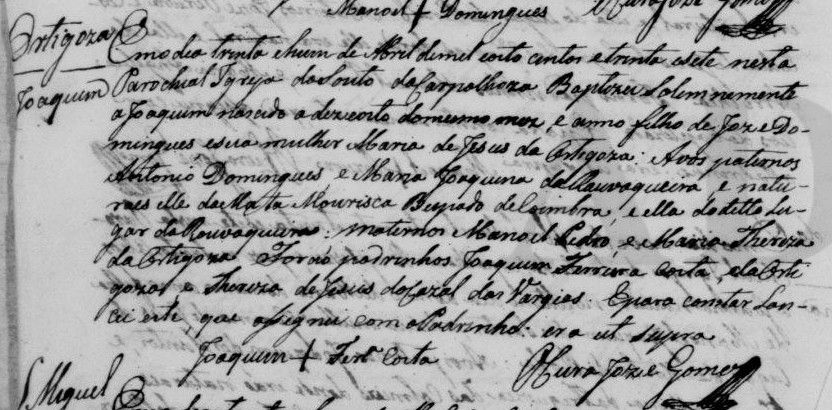 Manoel + Domingues O Cura Joze Gomez
Ortigoza
Joaquim
Em o dia trinta e hum de Abril de mil e oito centos e trinta e sete nesta
Parochial Igreja do Souto da Carpalhoza Baptizei Solemnemente
a Joaquim nascido a dezoito do mesmo mez, e anno filho de Joze Do-
mingues e sua mulher Maria de Jesus da Ortigoza: Avós paternos
Antonio Domingues, e Maria Joaquina da Rouvaqueira, e natu-
raes elle da Mata Mourisca Bispado de Coimbra, e ella do ditto Lu-
gar da Rouvaqueira: maternos Manoel Pedro, e Maria Thereza
da Ortigoza. Forão padrinhos Joaquim Ferreira Coita, da Orti
goza, e Thereza de Jesus do Cazal das Vargies. E para constar lan-
cei este, que assignei com o Padrinho: era ut supra
Joaquim + Ferra Coita O Cura Joze Gomez
S. Miguel